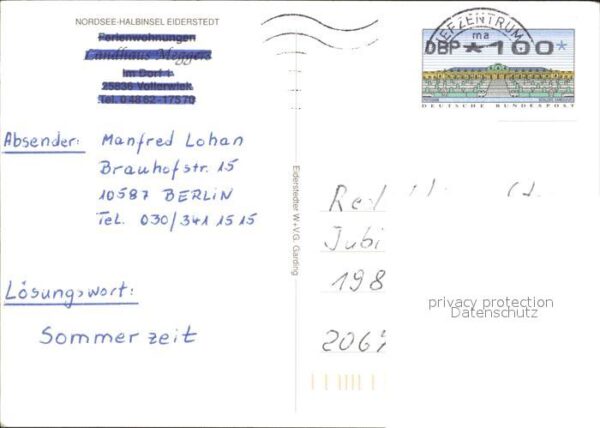 NORDSEE-HALBINSEL EIDERSTEDT
Ferienwohnungen
Landhaus Meggers
Im Dorf 1
25836 Vollerwiek
Tel. 04862-17570
Absender: Manfred Lohan
Brauhofstr. 15
10587 BERLIN
Tel. 030/341 15 15
Lösungswort:
Sommerzeit
Eiderstedter W+VG. Garding
BRIEFZENTRUM
DBP *100*
DEUTSCHE BUNDESPOST
Jubi
198
privacy protection
Datenschutz